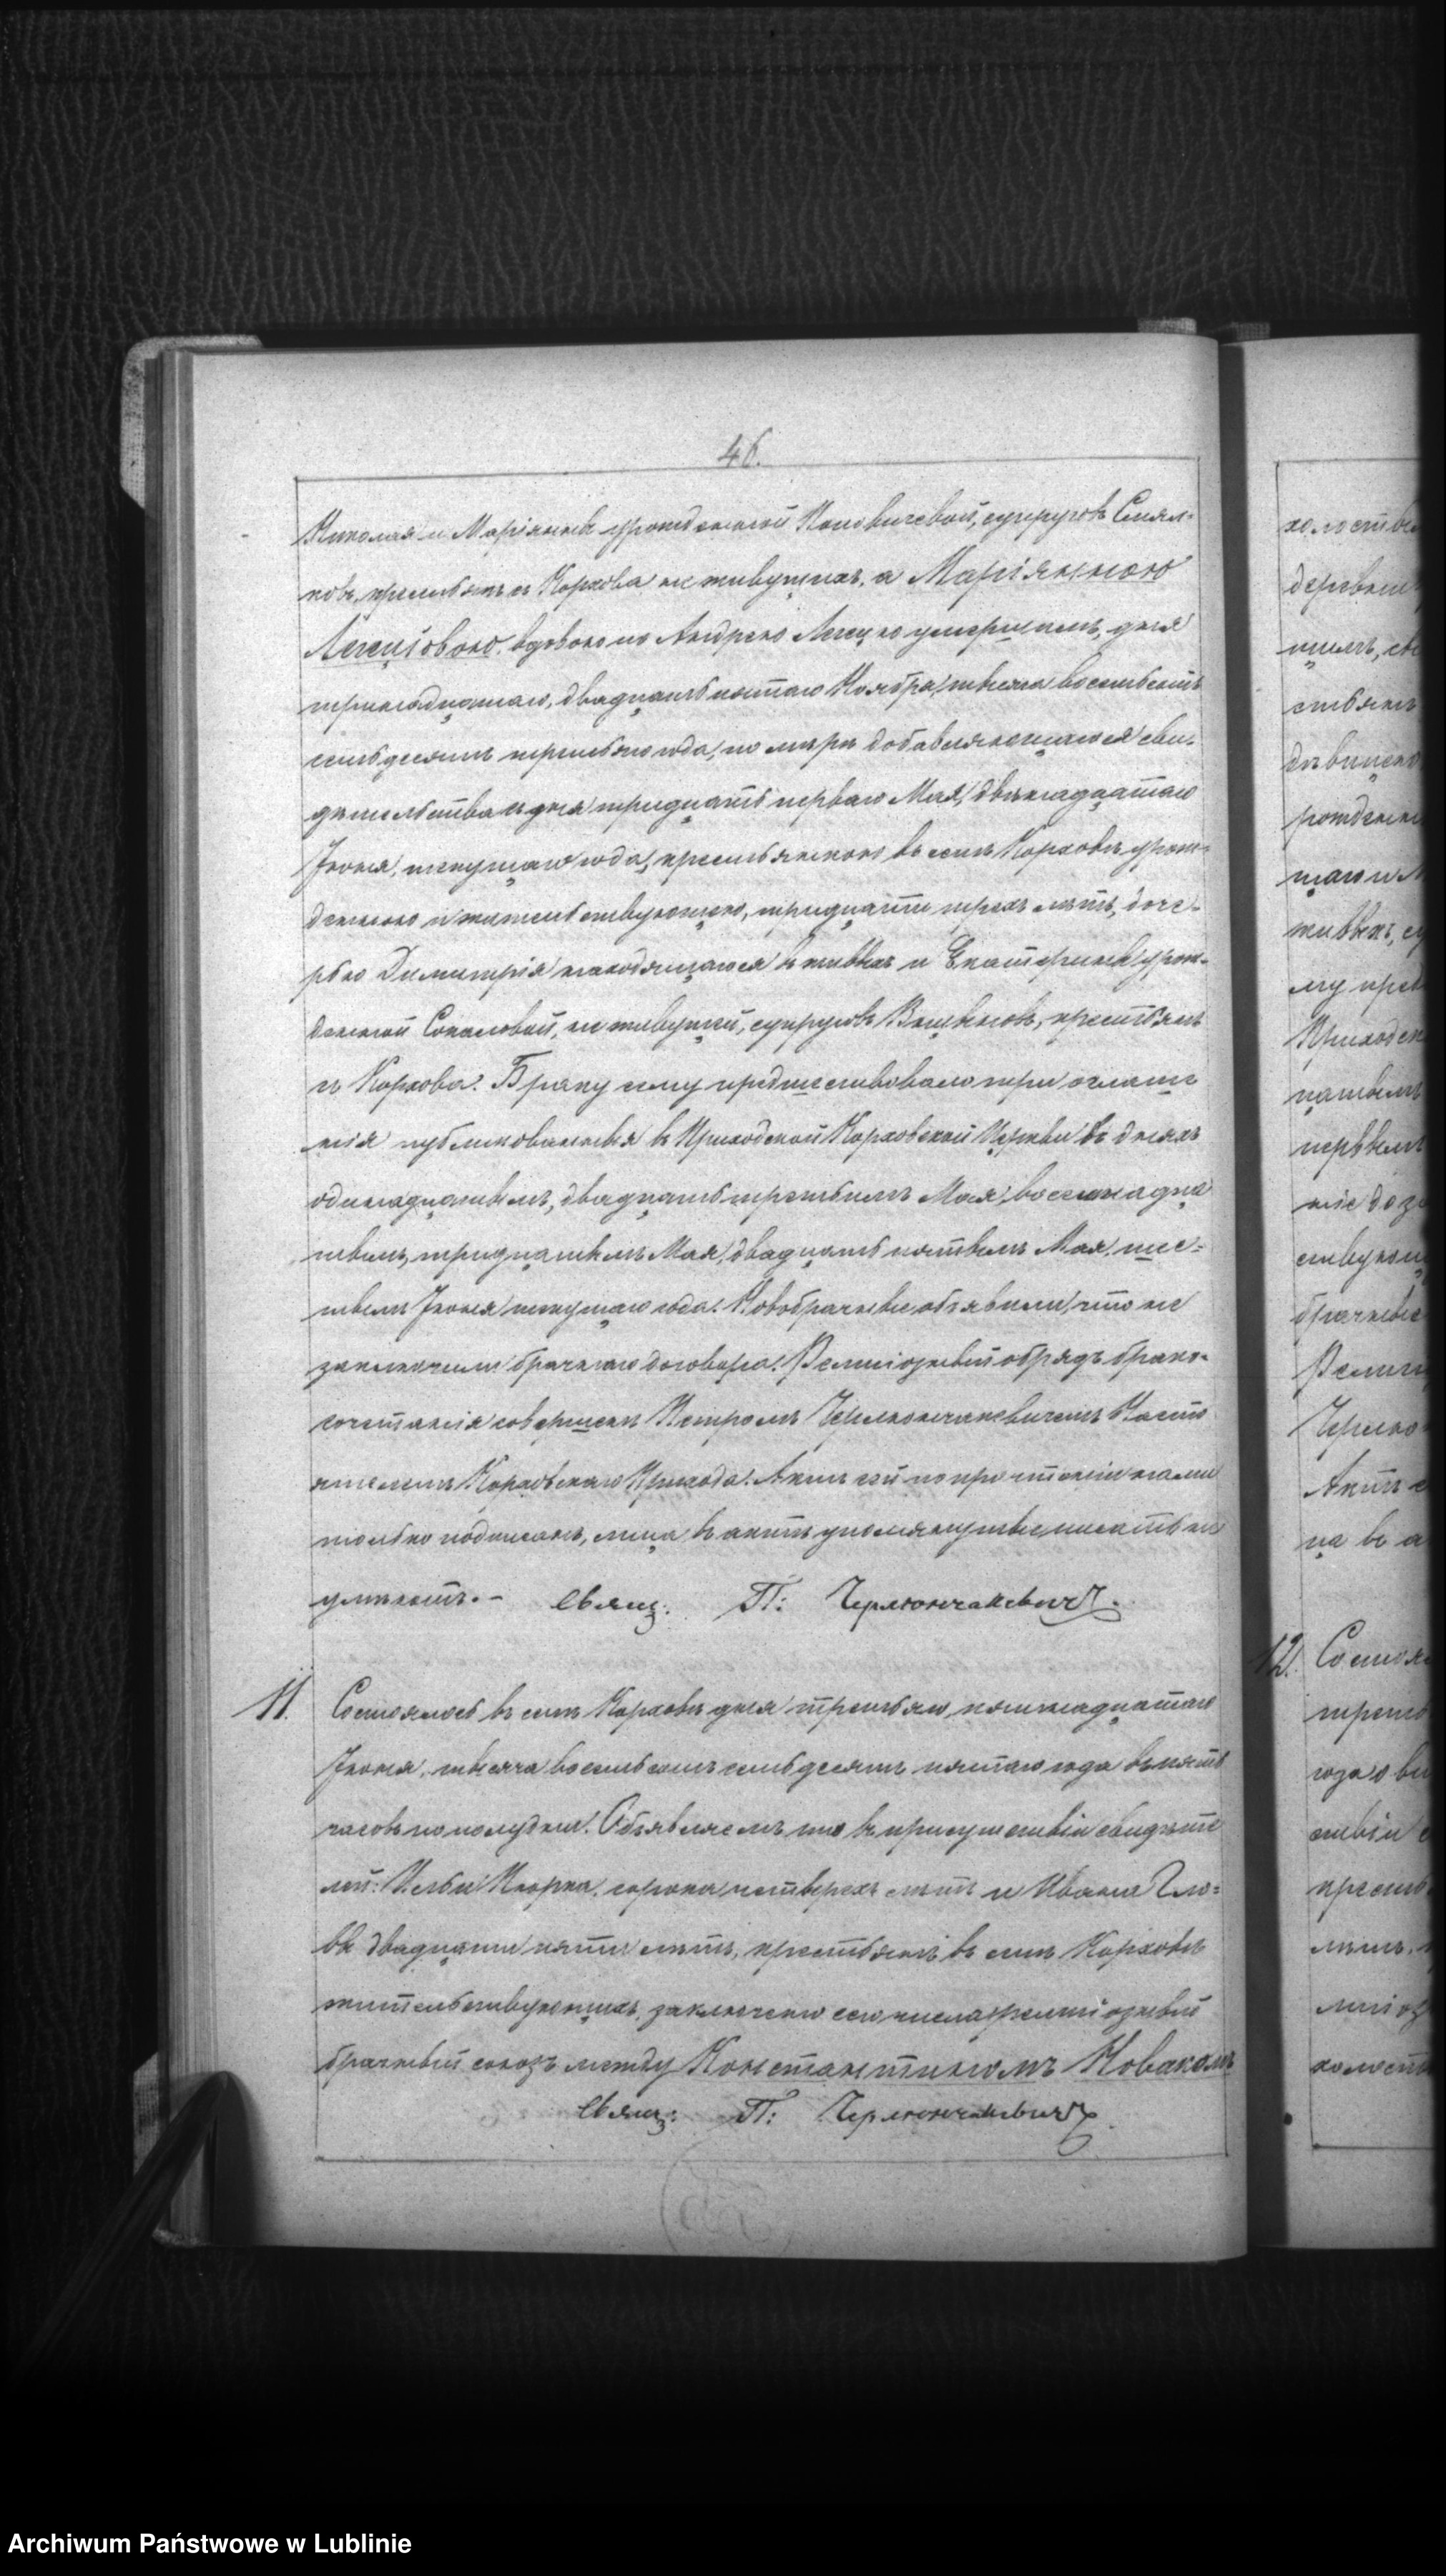 46.
Николая и Маріянны урожденной Поповичевой, супруговъ Смял-
ковъ, крестьянъ с Корхова не живущихъ, а Маріянною
вдовою по Андрею умершемъ, дня
тринадцатаго, двадцать пятаго Ноября, тысяча восемьсотъ
семьдесятъ третьяго года, по мѣрѣ добавляющагося сви-
дѣтельства съ дня тридцать перваго Мая, двѣнадцатаго
Іюня, текущаго года, крестьянкою въ селѣ Корховѣ урож-
денною и жительствующею, тридцати трехъ лѣтъ, доче-
рью Димитрія находящагося в живыхъ и Екатерины урож-
денной Сокаловой, не живущей, супруговъ крестьянъ
съ Корхова. Браку сему предшествовало три оглаше
нія публикованныя въ Приходской Корховской Церкви въ дняхъ
одинадцатымъ, двадцать третьимъ Мая, восемнадца
тымъ, тридцатымъ Мая, двадцать пятымъ Мая, шес-
тымъ Іюня текущаго года. Новобрачные объявили, что не
заключили брачнаго договора. Религіозный обрядъ брако-
сочетанія совершенъ Петромъ Черлюнчакевичемъ Насто
ятелемъ Корховскаго Прихода. Актъ сей по прочтеніи нами
только подписанъ, лица въ актѣ упомянутые писать не
умѣютъ.- Свящ: П: Черлюнчакевичъ.
11. Состоялось въ селѣ Корховѣ дня третьяго, пятнадцатаго
Іюня, тысяча восемьсотъ семьдесятъ пятаго года въ пять
часовъ по полудни. Объявляемъ что въ присутствіи свидѣте
лей: Ильи сорока четырехъ лѣтъ и Ивана Гло-
вы двадцати пяти лѣтъ, крестьянъ въ селѣ Корховѣ
жительствующихъ, заключенъ сего числа религіозный
брачный союзъ между Константиномъ Новакомъ
Свящ: П: Черлюнчакевичъ.
12. Состоя
Archiwum Państwowe w Lublinie